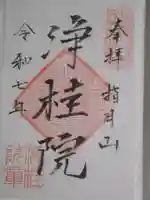 奉拝
指月山
浄桂院
令和七年